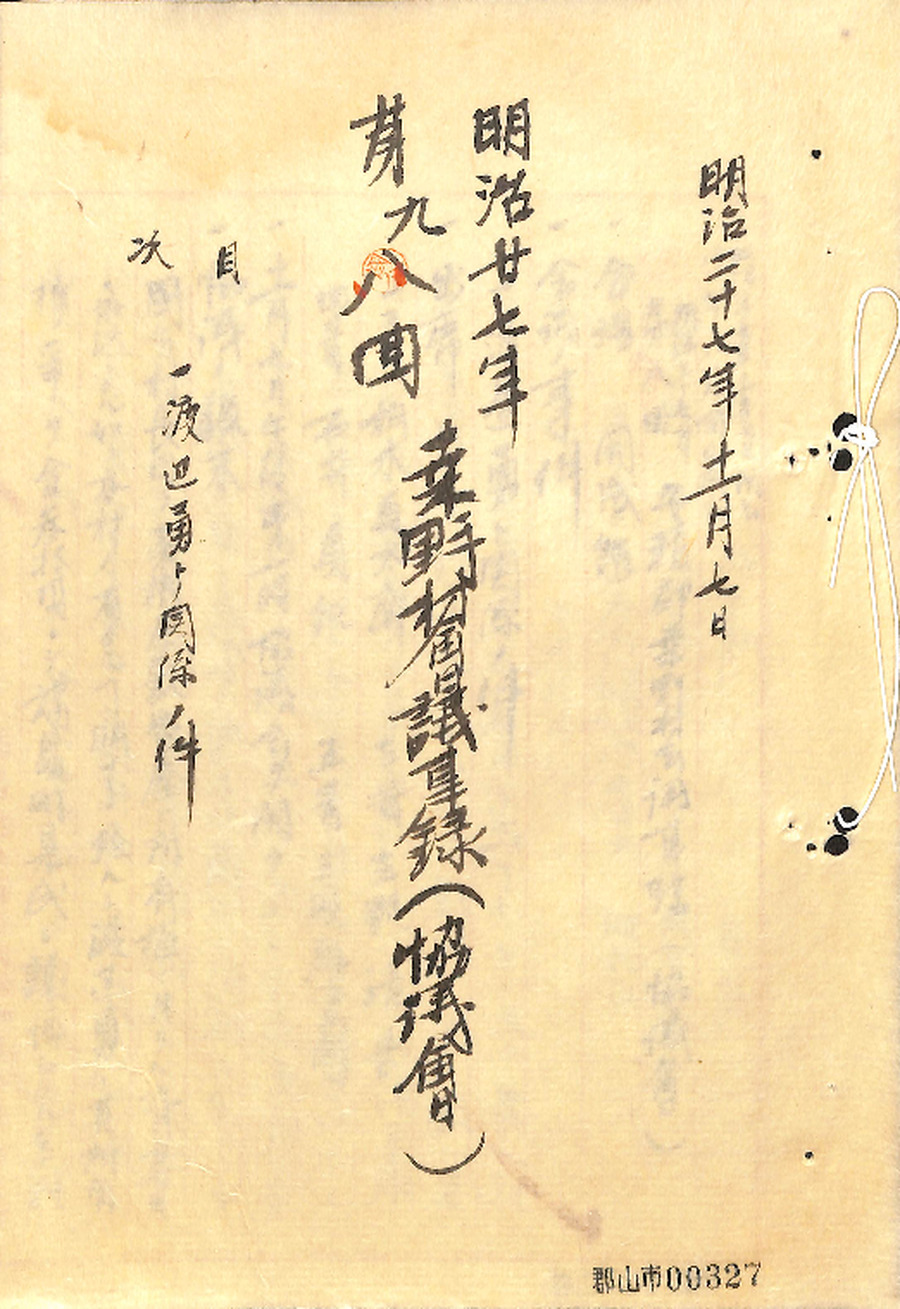 明治二十七年十二月七日
明治廿七年
第九八回
桑野村會議事録（協議會）
目次
一渡辺勇ト関係ノ件
郡山市00327